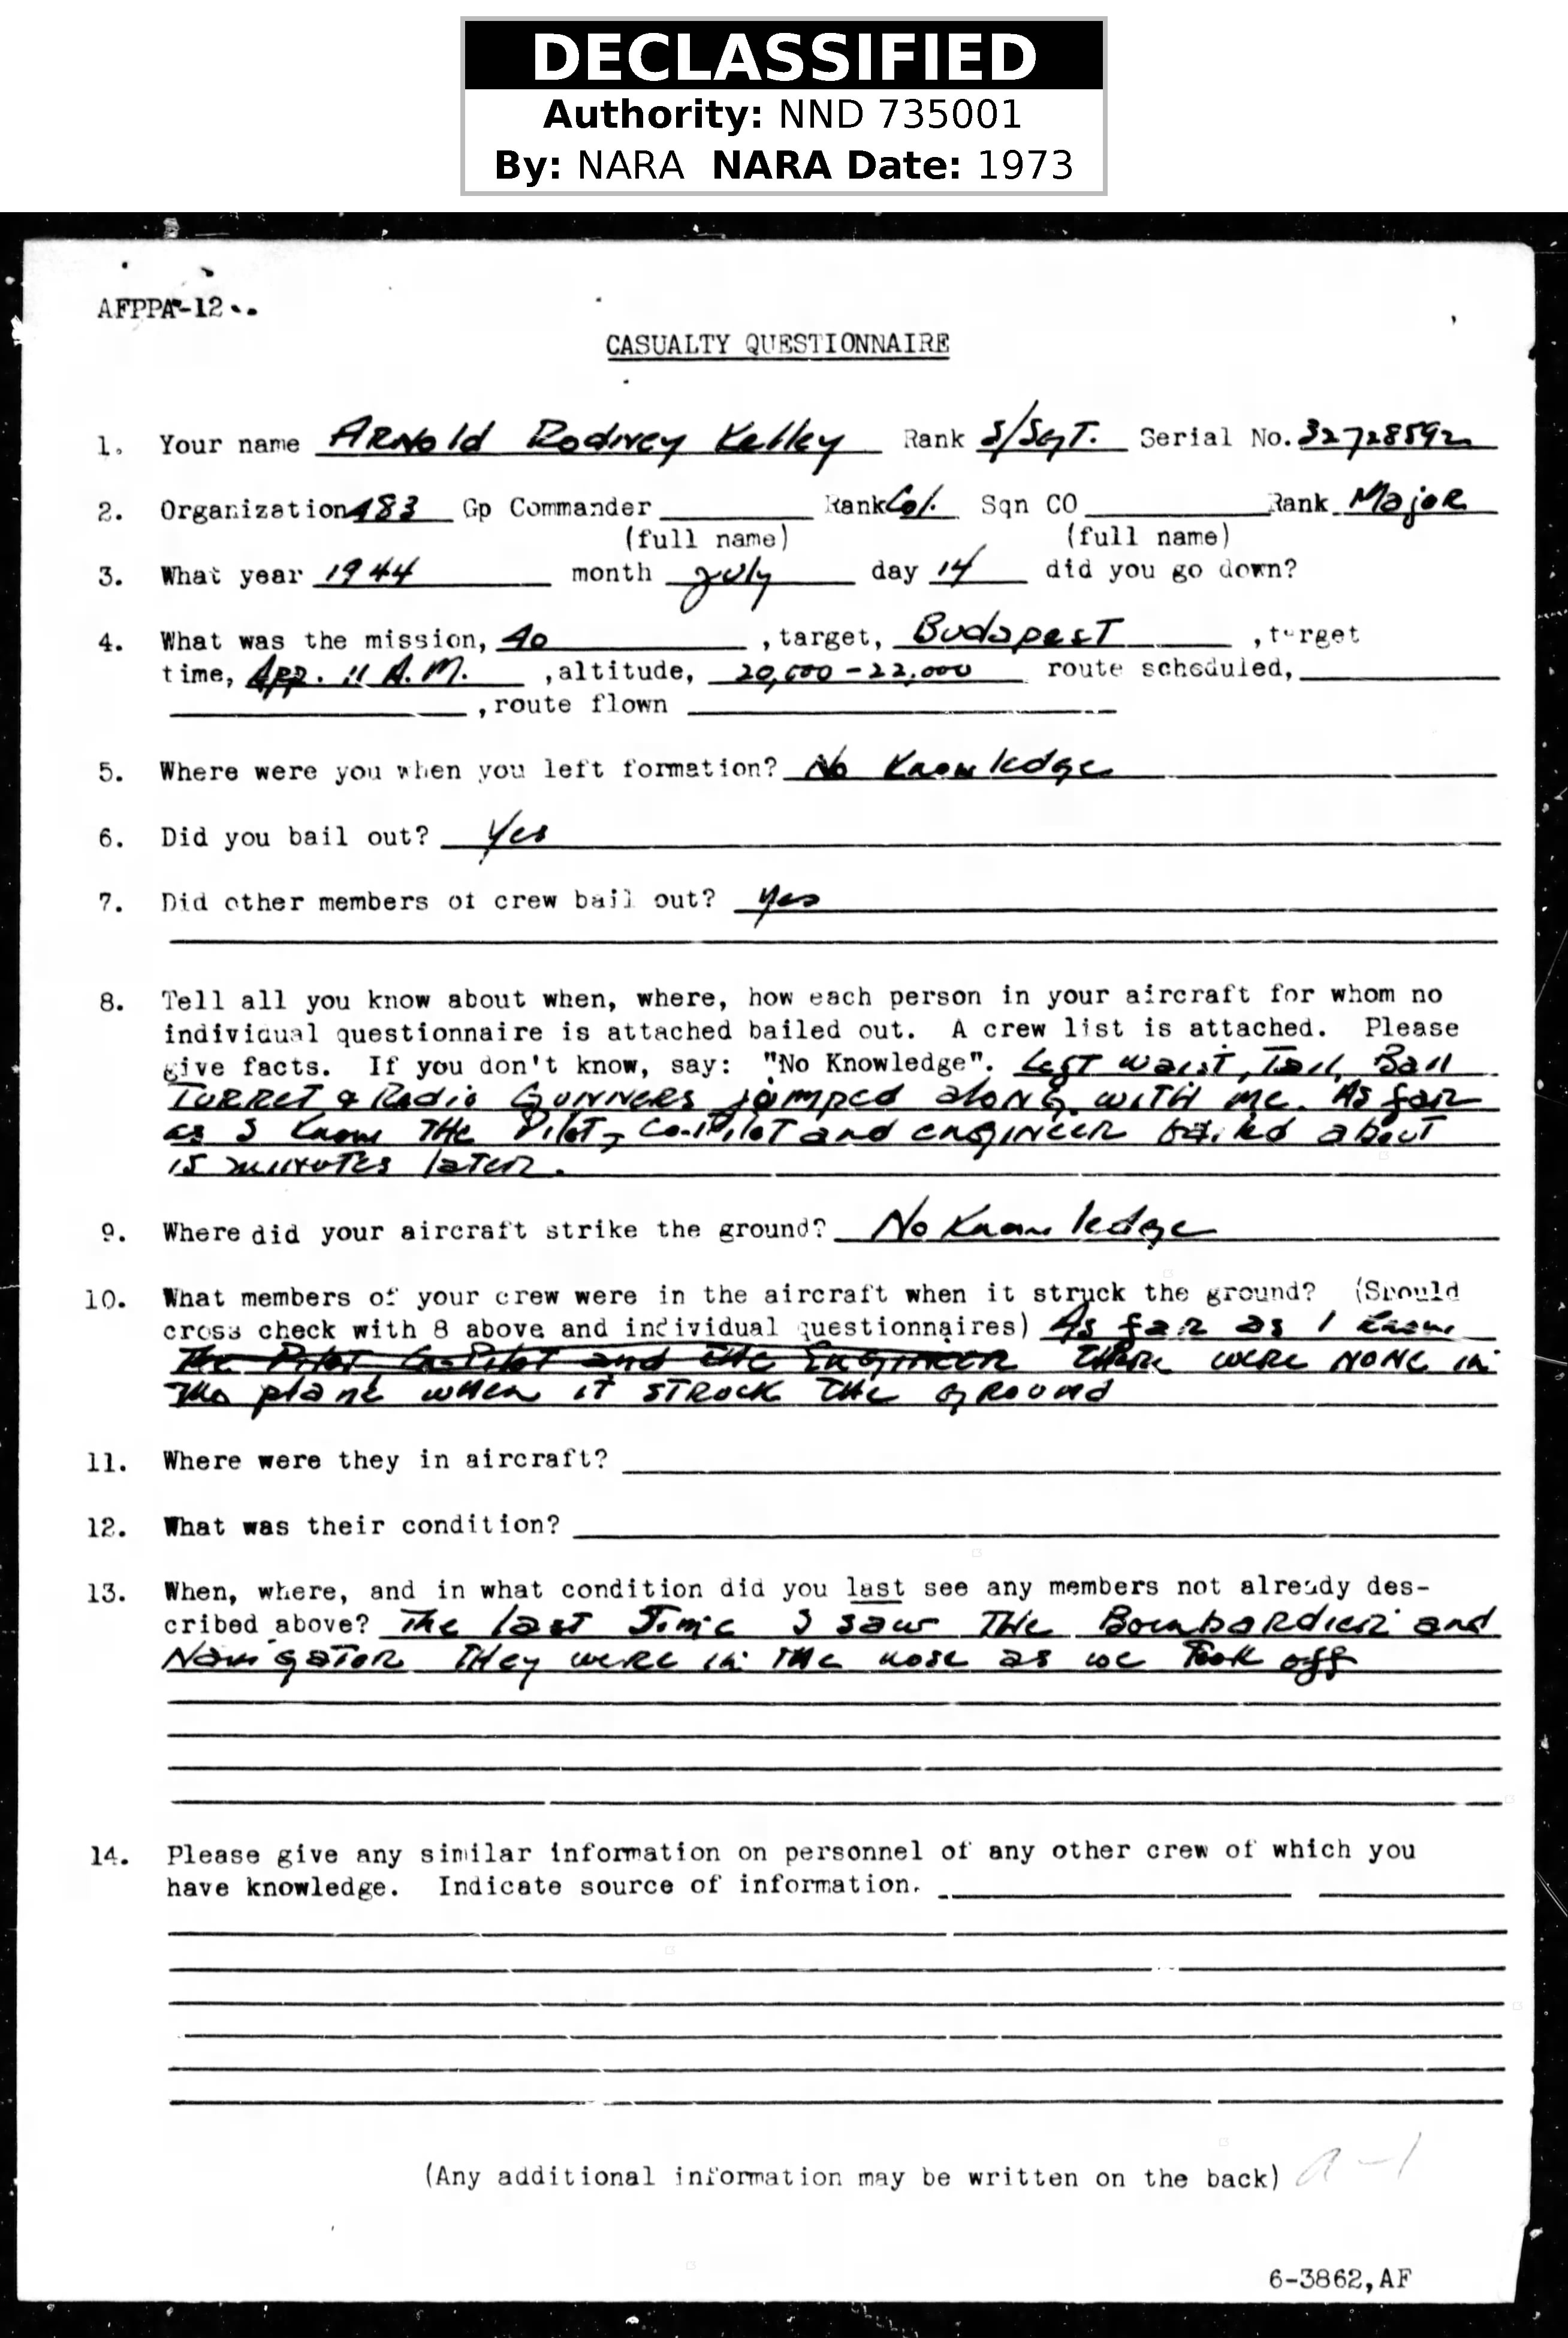 DECLASSIFIED
Authority: NND 735001
By: NARA NARA Date: 1973
AFPPA-12
CASUALTY QUESTIONNAIRE
1. Your name Arnold Rodney Kelley Rank S/Sgt. Serial No. 32728592
2. Organization 483 Gp Commander Rank Col. Sqn CO Rank Major
(full name) (full name)
3. What year 1944 month July day 14 did you go down?
4. What was the mission, 40, target, Budapest, target
time, App. 11 A.M., altitude, 20,000-22,000 route scheduled,
, route flown
5. Where were you when you left formation? No Knowledge
6. Did you bail out? Yes
7. Did other members of crew bail out? Yes
8. Tell all you know about when, where, how each person in your aircraft for whom no
individual questionnaire is attached bailed out. A crew list is attached. Please
give facts. If you don't know, say: "No Knowledge". Left waist, Tail, Ball
Turret & Radio Gunners jumped along with me. As far
as I know The Pilot, Co-Pilot and engineer bailed about
15 minutes later.
9. Where did your aircraft strike the ground? No Knowledge
10. What members of your crew were in the aircraft when it struck the ground? (Should
cross check with 8 above and individual questionnaires) As far as I know
The Pilot Co-Pilot and the Engineer There were none in
the plane when it struck the ground
11. Where were they in aircraft?
12. What was their condition?
13. When, where, and in what condition did you last see any members not already des-
cribed above? The last Time I saw The Bombardier and
Navigator They were in the nose as we Took off
14. Please give any similar information on personnel of any other crew of which you
have knowledge. Indicate source of information.
(Any additional information may be written on the back) a-1
6-3862, AF